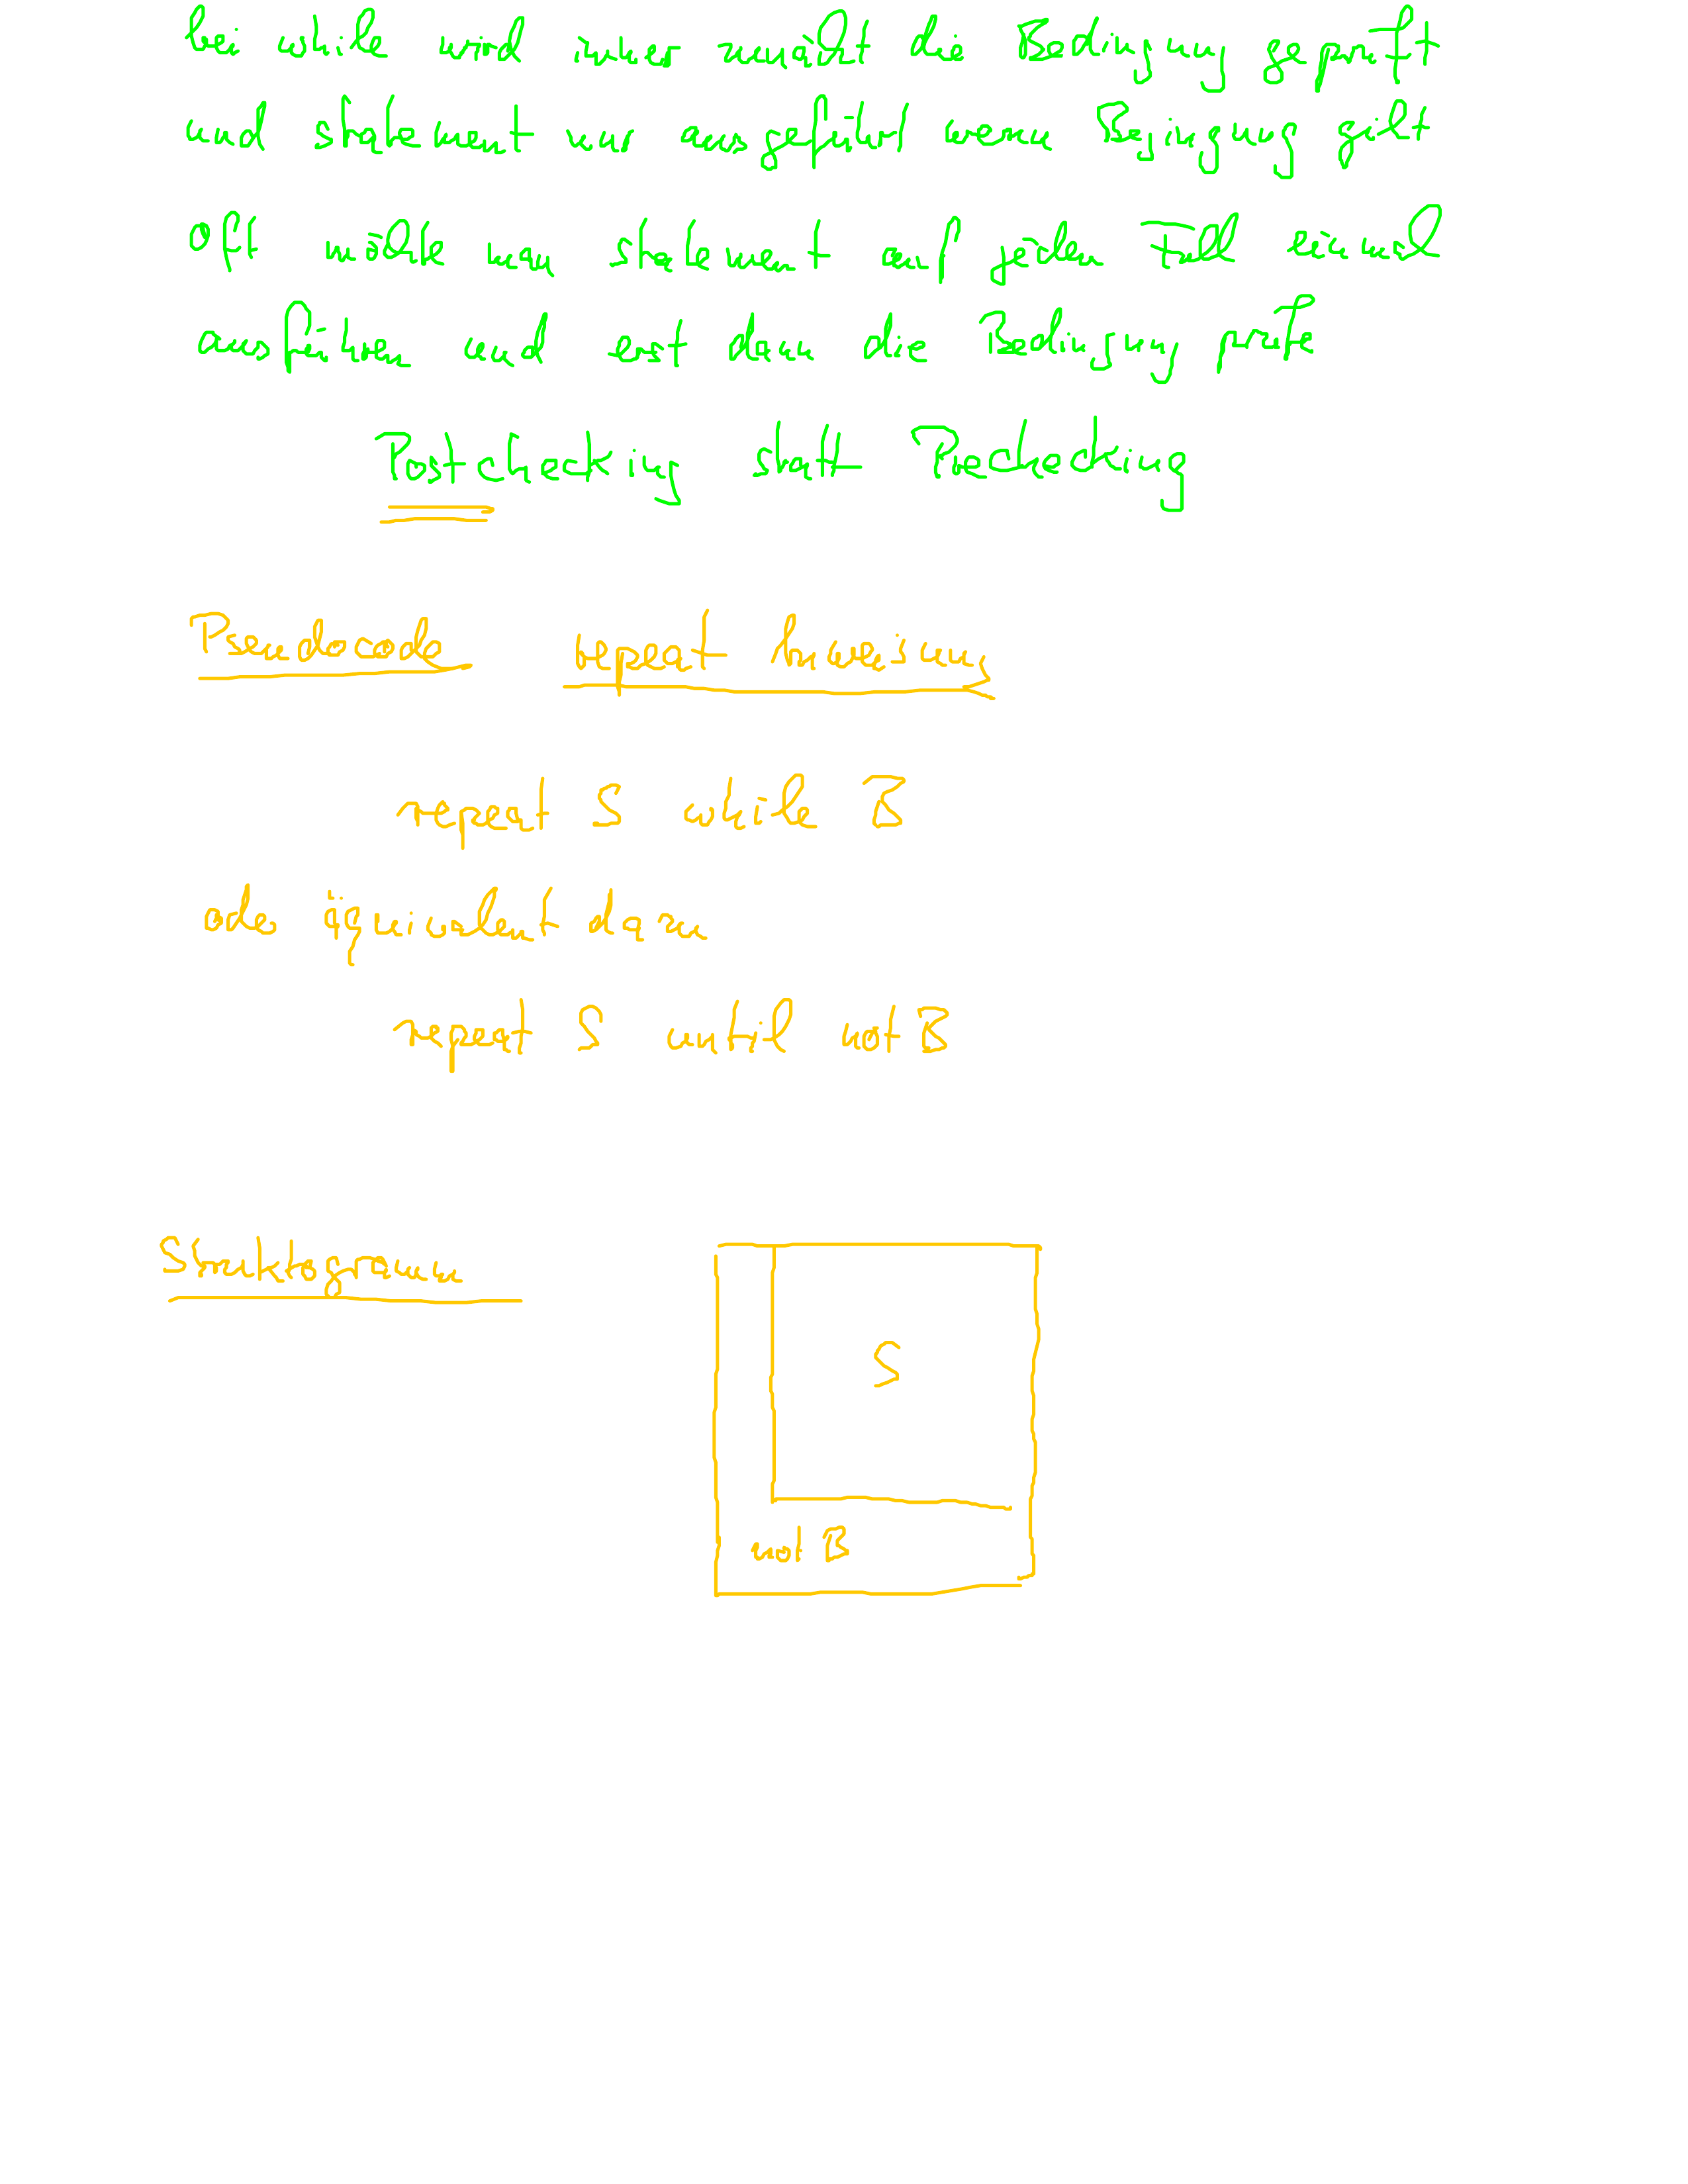 bei while wird immer zunächst die Bedingung geprüft
und Statement nur ausgeführt wenn Bedingung gilt
Oft möchte man Statement auf jeden Fall einmal
ausführen und erst dann die Bedingung prüfe
Postchecking statt Prechecking
Pseudocode repeat
repeat S while B
oder äquivalent dazu
repeat S until not B
Struktogramm
S
not B